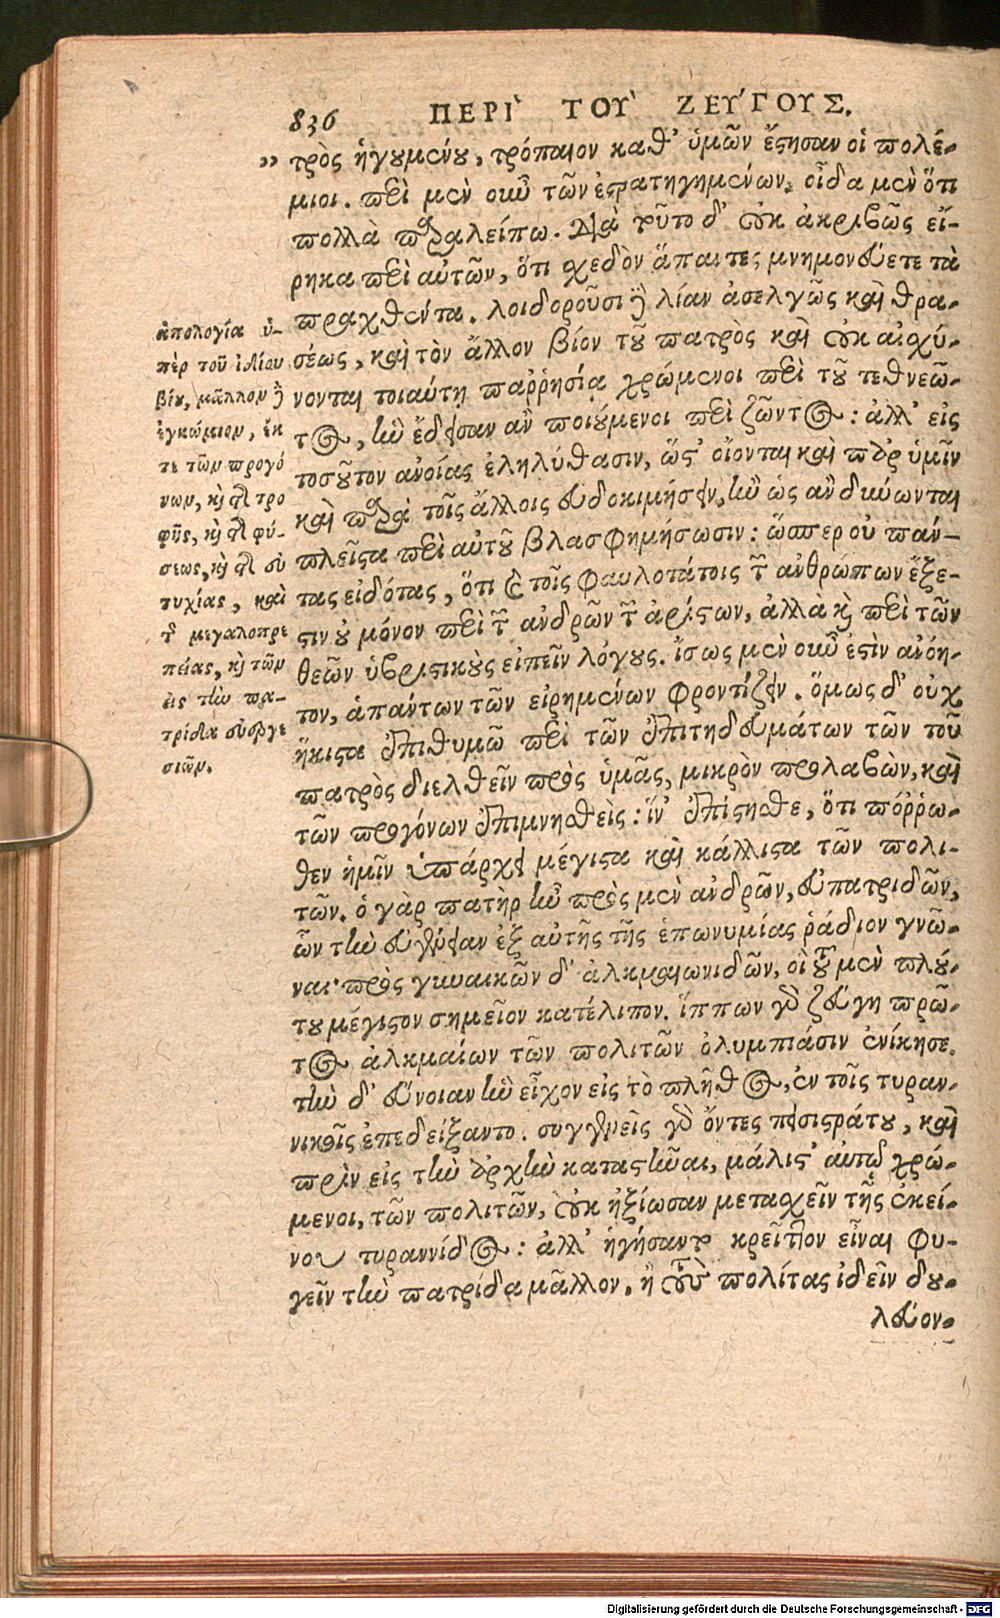 836 ΠΕΡΙ` ΤΟΥ͂ ΖΕΥ΄ΓΟΥΣ.
„ τρὸς ἡγουμένου, τρόπαιον καθ' ὑμῶν ἔστησαν οἱ πολέ-
μιοι. περὶ μὲν οὖν τῶν ἐστρατηγημένων, οἶδα μὲν ὅτι
πολλὰ παραλείπω. διὰ τοῦτο δ' οὐκ ἀκριβῶς εἴ-
ρηκα περὶ αὐτῶν, ὅτι σχεδὸν ἅπαντες μνημονεύετε τὰ
πραχθέντα. λοιδοροῦσι δὲ λίαν ἀσελγῶς καὶ θρα-
σέως, καὶ τὸν ἄλλον βίον τοῦ πατρὸς καὶ οὐκ αἰσχύ-
νονται τοιαύτῃ παῤῥησίᾳ χρώμενοι περὶ τοῦ τεθνεῶ-
τος, ἣν ἔδεισαν ἂν ποιούμενοι περὶ ζῶντος: ἀλλ' εἰς
τοσοῦτον ἀνοίας ἐληλύθασιν, ὥστ' οἴονται καὶ παρ' ὑμῖν
καὶ παρὰ τοῖς ἄλλοις εὐδοκιμήσειν, ἢν ὡς ἂν δύνωνται
πλεῖστα περὶ αὐτοῦ βλασφημήσωσιν: ὥσπερ οὐ πάν-
τας εἰδότας, ὅτι καὶ τοῖς φαυλοτάτοις τῶν ἀνθρώπων ἔξε-
στιν οὐ μόνον περὶ τῶν ἀνδρῶν τῶν ἀρίστων, ἀλλὰ καὶ περὶ τῶν
θεῶν ὑβριστικοὺς εἰπεῖν λόγους. ἴσως μὲν οὖν ἐστὶν ἀνόη-
τον, ἁπάντων τῶν εἰρημένων φροντίζειν. ὅμως δ' οὐχ
ἥκιστα ἐπιθυμῶ περὶ τῶν ἐπιτηδευμάτων τῶν τοῦ
πατρὸς διελθεῖν πρὸς ὑμᾶς, μικρὸν προλαβὼν, καὶ
τῶν προγόνων ἐπιμνησθεὶς: ἵν' ἐπίστησθε, ὅτι πόῤῥω-
θεν ἡμῖν ὑπάρχει μέγιστα καὶ κάλλιστα τῶν πολι-
τῶν. ὁ γὰρ πατὴρ ἦν πρὸς μὲν ἀνδρῶν, εὐπατριδῶν,
ὧν τὴν εὐγένειαν ἐξ αὐτῆς τῆς ἐπωνυμίας ῥάδιον γνῶ-
ναι· πρὸς γυναικῶν δ' ἀλκμαιωνιδῶν, οἳ τοῦ μὲν πλού-
του μέγιστον σημεῖον κατέλιπον. ἵππων γὰρ ζεύγη πρῶ-
τος ἀλκμαίων τῶν πολιτῶν ὀλυμπιάσιν ἐνίκησε.
τὴν δ' εὔνοιαν ἣν εἶχον εἰς τὸ πλῆθος, ἐν τοῖς τυραν-
νικοῖς ἐπεδείξαντο. συγγενεῖς γὰρ ὄντες πεισιστράτου, καὶ
πρὶν εἰς τὴν ἀρχὴν καταστῆναι, μάλιστ' αὐτῷ χρώ-
μενοι, τῶν πολιτῶν, οὐκ ἠξίωσαν μετασχεῖν τῆς ἐκεί-
νου τυραννίδος: ἀλλ' ἡγήσαντο κρεῖττον εἶναι φυ-
γεῖν τὴν πατρίδα μᾶλλον, ἢ τοὺς πολίτας ἰδεῖν δου-
λεύον-
ἀπολογία ὑ-
πὲρ τοῦ ἰδίου
βίου, μᾶλλον δὲ
ἐγκώμιον, ἔκ
τε τῶν προγό
νων, καὶ τῆς τρο
φῆς, καὶ τῆς φύ-
σεως, καὶ τῆς εὐ
τυχίας, καὶ
τῆς μεγαλοπρε
πείας, καὶ τῶν
εἰς τὴν πα-
τρίδα εὐεργε
σιῶν.
Digitalisierung gefördert durch die Deutsche Forschungsgemeinschaft - DFG